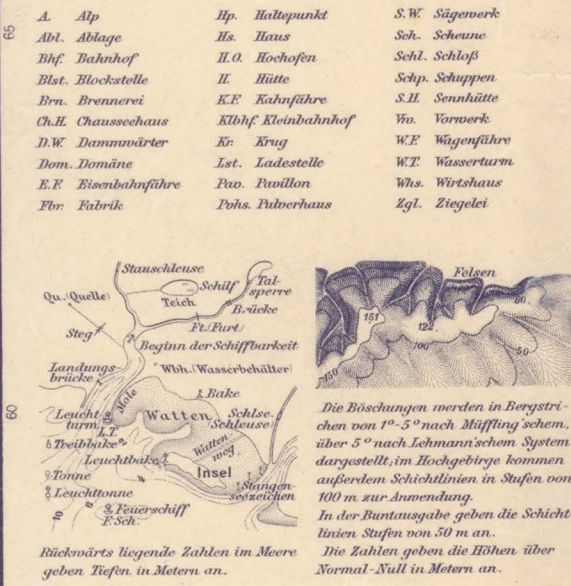 65
A. Alp
Abl. Ablage
Bhf. Bahnhof
Blst. Blockstelle
Brn. Brennerei
Ch.H. Chausseehaus
D.W. Dammwärter
Dom. Domäne
E.F. Eisenbahnfähre
Fbr. Fabrik
Hp. Haltepunkt
Hs. Haus
H.O. Hochofen
H. Hütte
K.F. Kahnfähre
Klbhf. Kleinbahnhof
Kr. Krug
Lst. Ladestelle
Pav. Pavillon
Pvhs. Pulverhaus
S.W. Sägewerk
Sch. Scheune
Schl. Schloß
Schp. Schuppen
S.H. Sennhütte
Vw. Vorwerk
W.F. Wagenfähre
W.T. Wasserturm
Whs. Wirtshaus
Zgl. Ziegelei
60
Stauschleuse
Schilf
Tal-
sperre
Qu.(Quelle)
Teich
Brücke
Steg
Ft.(Furt)
Beginn der Schiffbarkeit
Landungs-
brücke
Wbh.(Wasserbehälter)
Bake
Mole
Leucht
turm
L.T.
Watten
Schlse.
Schleuse
Treibbake
2
Watten
weg
Leuchtbake
2
Insel
Tonne
4
Leuchttonne
Stangen-
seezeichen
6
10
Feuerschiff
F.Sch.
Rückwärts liegende Zahlen im Meere
geben Tiefen in Metern an.
Felsen
151
122
100
80
50
150
Die Böschungen werden in Bergstri-
chen von 1º-5º nach Müffling'schem,
über 5º nach Lehmann'schem System
dargestellt; im Hochgebirge kommen
außerdem Schichtlinien in Stufen von
100 m zur Anwendung.
In der Buntausgabe geben die Schicht-
linien Stufen von 50 m an.
Die Zahlen geben die Höhen über
Normal-Null in Metern an.